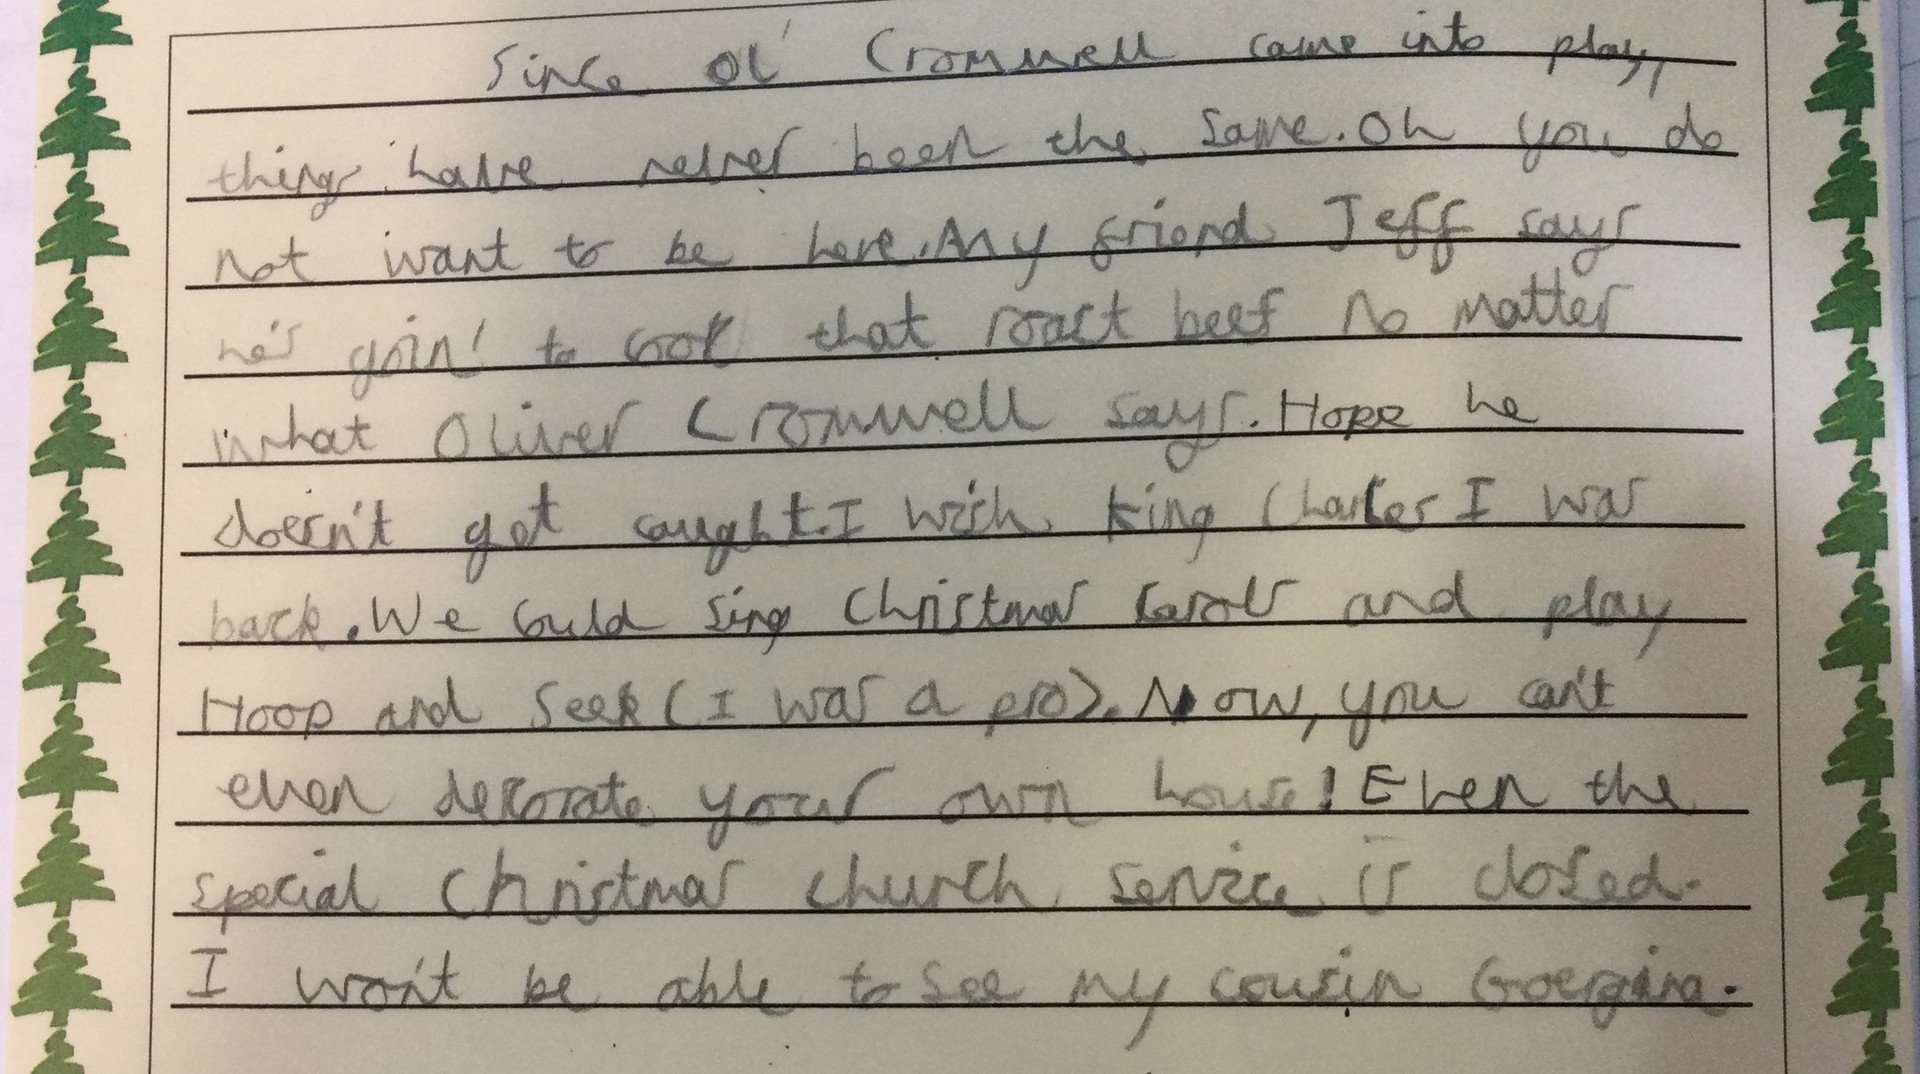 Since Ol' Cromwell came into play,
things have never been the same. Oh you do
not want to be here. My friend Jeff says
he's goin' to cook that roast beef no matter
what Oliver Cromwell says. Hope he
doesn't get caught. I wish King Charles I was
back. We could sing Christmas carols and play
Hoop and Seek (I was a pro). Now, you can't
even decorate your own house! Even the
special Christmas church service is closed.
I won't be able to see my cousin Goergina.